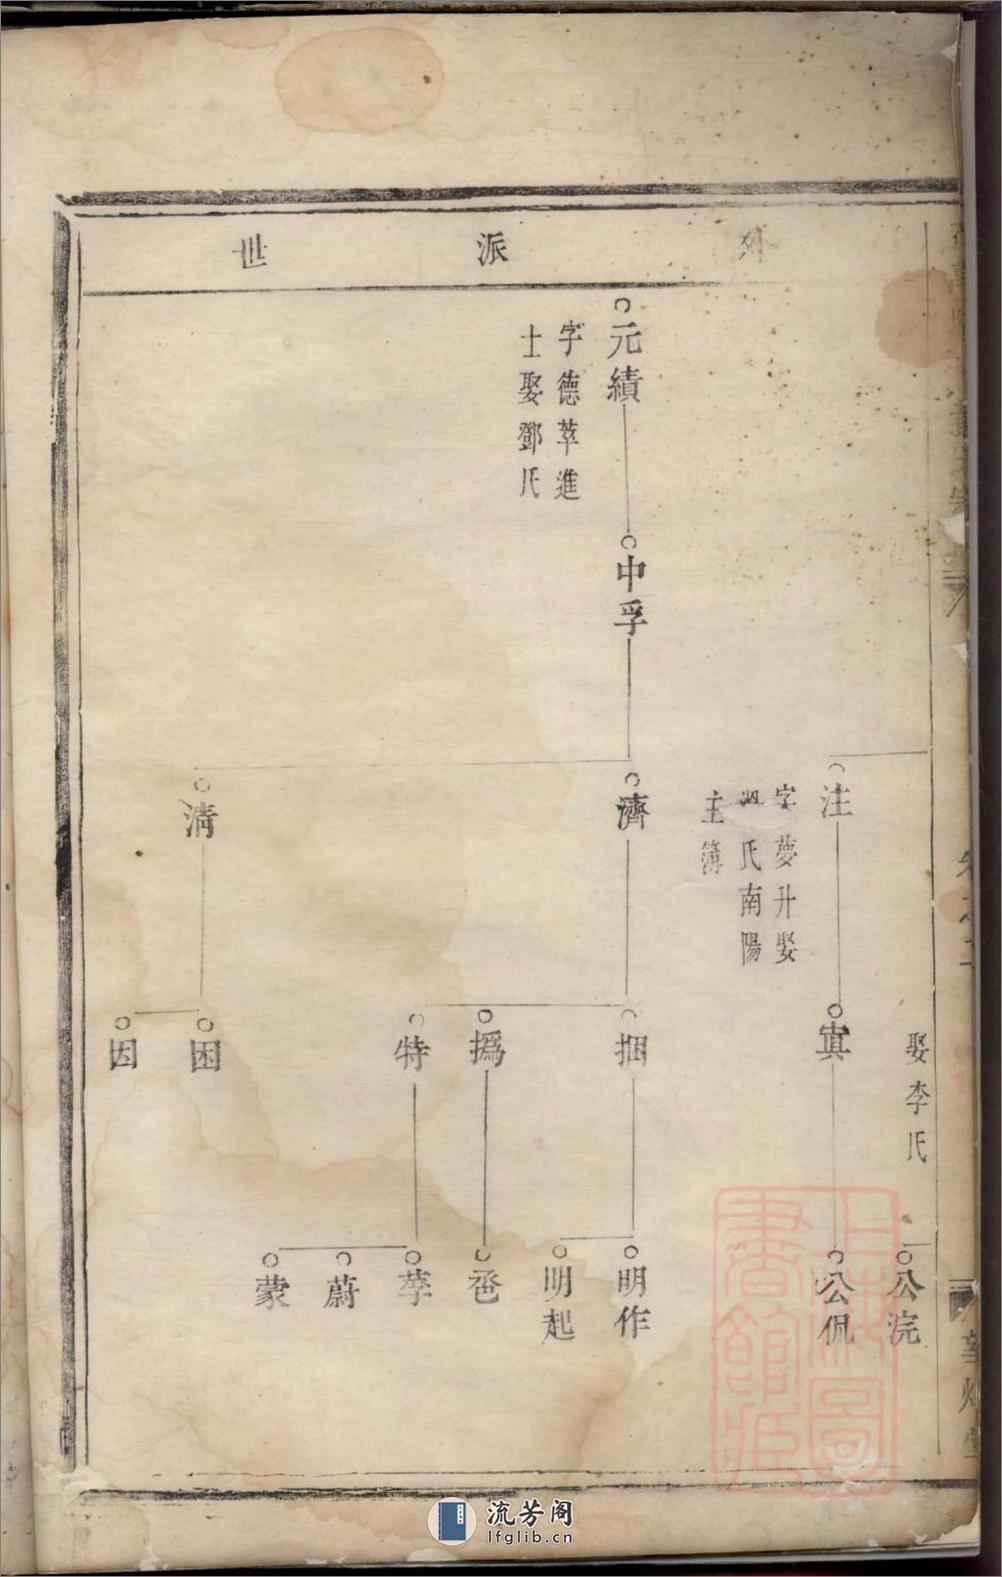 外派世
娶李氏
公浣
注
字夢升娶
氏南陽
主簿
寘
公侃
元績
字德萃進
士娶鄧氏
中孚
濟
捆
明作
明起
撝
爸
特
莩
蔚
蒙
淸
困
因
上海圖
書館藏
流芳阁
lfglib.cn